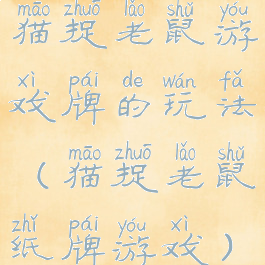 māo zhuō lǎo shǔ yóu
猫捉老鼠游
xì pái de wán fǎ
戏牌的玩法
māo zhuō lǎo shǔ
（猫捉老鼠
zhǐ pái yóu xì
纸牌游戏）